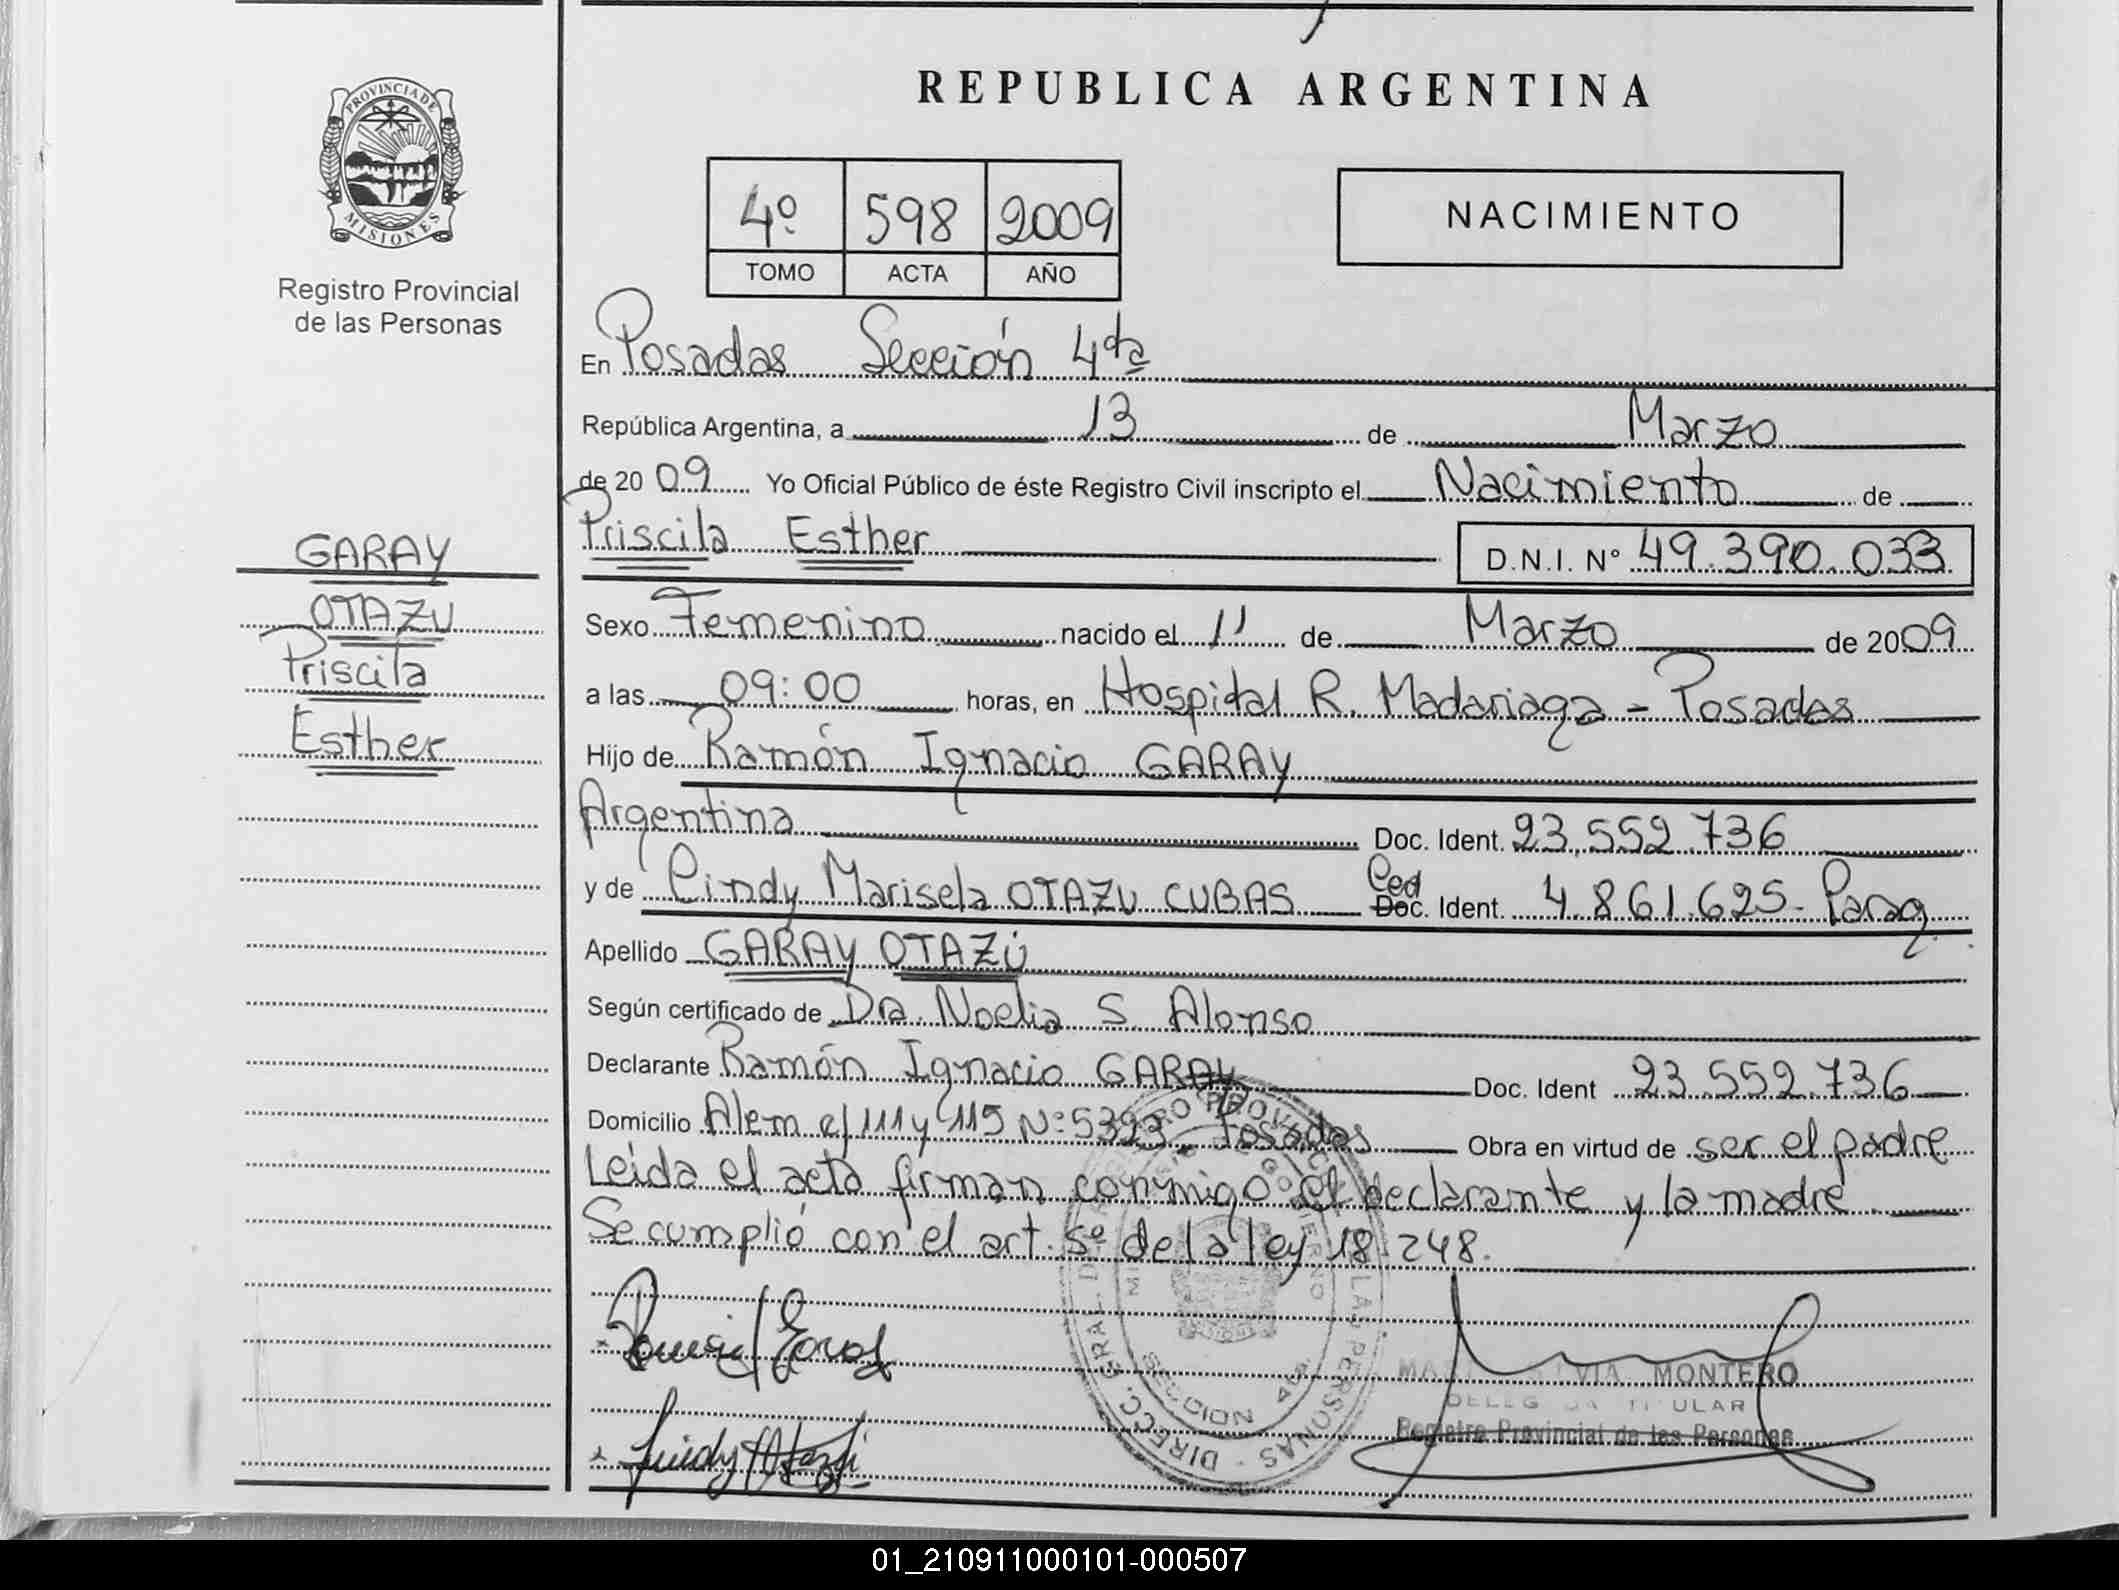 REPUBLICA ARGENTINA
PROVINCIA DE
MISIONES
Registro Provincial
de las Personas
4º 598 2009
TOMO ACTA AÑO
NACIMIENTO
En Posadas Sección 4ta
República Argentina, a 13 de Marzo
de 20 09 Yo Oficial Público de éste Registro Civil inscripto el Nacimiento de
Priscila Esther D.N.I. Nº 49.390.033
GARAY
OTAZU
Priscila
Esther
Sexo Femenino nacido el 11 de Marzo de 2009
a las 09:00 horas, en Hospital R. Madariaga - Posadas
Hijo de Ramón Ignacio GARAY
Argentina Doc. Ident. 23.552.736
y de Cindy Marisela OTAZU CUBAS Ced Doc. Ident. 4.861.625- Parag.
Apellido GARAY OTAZÚ
Según certificado de Dra. Noelia S. Alonso
Declarante Ramón Ignacio GARAY Doc. Ident 23.552.736
Domicilio Alem e/ 111 y 115 Nº 5393 - Posadas Obra en virtud de ser el padre
Leída el acta firman conmigo el declarante y la madre
Se cumplió con el art. 5º de la ley 18.248.
MONTERO
Registro Provincial de las Personas
01_210911000101-000507